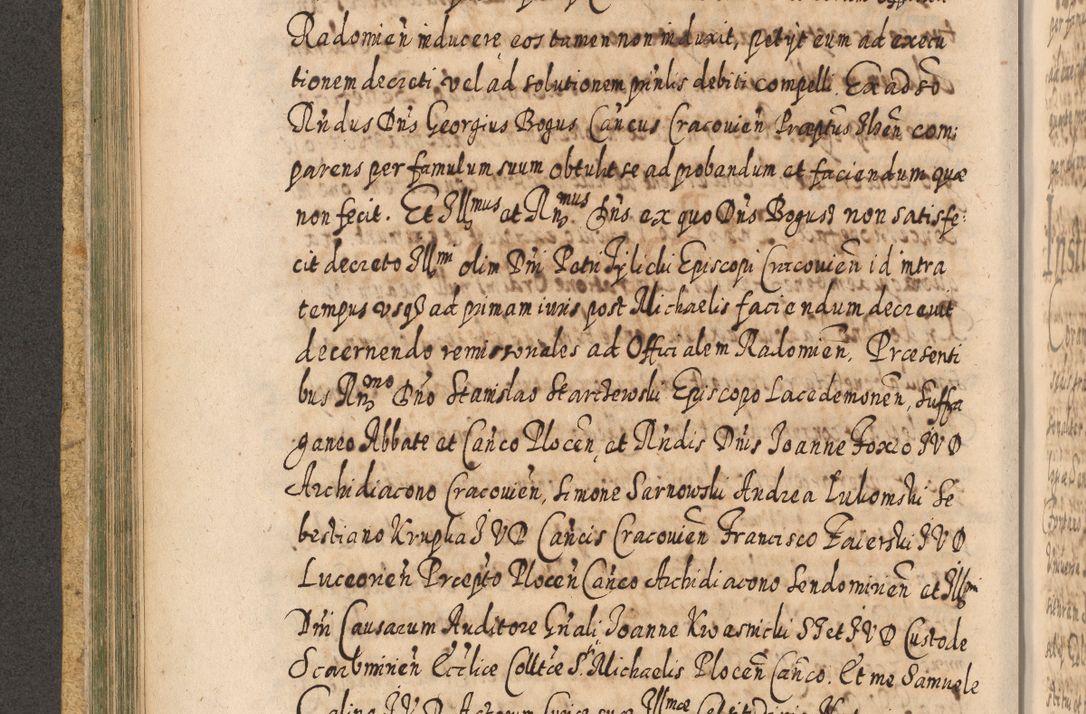 Radomien̄ inducere eos tamen non induxit, petyt eum ad execu
tionem decreti vel ad solutionem prn̄lis debiti compelli. Ex adso
Rn̄dus Dn̄s Georgius Bogus Can̄cus Cracovien̄ Præptus Ilzen̄ com:
parens per famulum suum obtulit se ad probandum et faciendum quæ
non fecit. Et Illmus et Rn̄mus Dn̄s ex quo Dn̄s Bogusz non satisfe:
cit decreto Illmi olim Dn̄i Petri Tylicki Episcopi Cracovien̄ id intra
tempus usq₃ ad primam iuris post Michaelis faciendum decrevit
decernendo remissoriales ad Officialem Radomien̄, Præsenti
bus Rn̄mo Dn̄o Stanislao Starczewski Episcopo Lacedemonen̄, Suffra
ganeo Abbate et Can̄co Plocen̄, et Rn̄dis Dn̄is Joanne Foxio JVD
Archidiacono Cracovien̄, Simone Sarnowski Andrea Lukomski Se
bestiano Krupka JVD Can̄cis Cracovien̄ Francisco Zaierski JVD
Luceorien̄ Præpto Plocen̄ Can̄co Archidiacono Sendomirien̄ et Illmi
Dn̄i Causarum Auditore Gn̄ali Joanne Kwasnicki ST et JVD Custode
Scarbimirien̄ Eccliæ Colltæ S. Michaelis Plocen̄ Can̄co. Et me Samuele